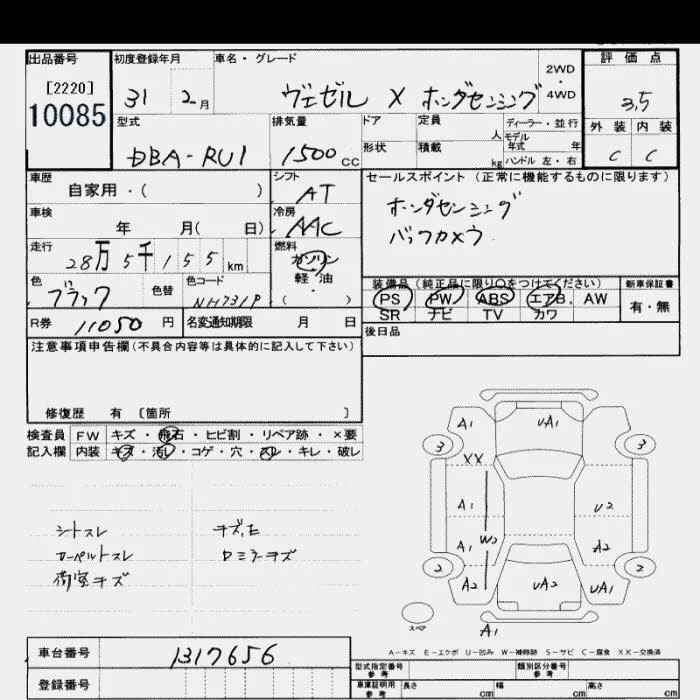 出品番号
[2220]
10085
初度登録年月
31 2月
車名・グレード
ヴェゼル X ホンダセンシング
2WD
・
4WD
評価点
3.5
外装 内装
C C
型式
DBA-RU1
排気量
1500cc
ドア
定員
人
形状
積載
kg
ディーラー・並行
モデル
年式 年
ハンドル 左・右
車歴
自家用・( )
シフト
AT
車検
年 月( 日)
冷房
AAC
走行
28万5千155km
燃料
ガソリン
・
軽油
・
( )
色
ブラック
色替
色コード
NH731P
R券
11050円
名変通知期限 月 日
セールスポイント(正常に機能するものに限ります)
ホンダセンシング
バックカメラ
装備品(純正品に限り〇をつけてください)
PS PW ABS エアB. AW
SR ナビ TV カワ
新車保証書
有・無
後日品
注意事項申告欄(不具合内容等は具体的に記入して下さい)
修復歴 有 [箇所 ]
検査員
記入欄
FW キズ・飛石・ヒビ割・リペア跡・×要
内装 キズ・汚レ・コゲ・穴・スレ・キレ・破レ
シートスレ
カーペットスレ
荷室キズ
キズ,E
ロミラーキズ
A1 UA1
3 3
XX
A1 U2
A1 W2 A2
2 2
A2 UA2 UA1
スペア
A1
A-キズ E-エクボ U-凹み W-補修跡 S-サビ C-腐食 XX-交換済
車台番号
1317656
登録番号
型式指定番号
参考
類別区分番号
参考
車庫証明用
参考
長さ cm
幅 cm
高さ cm